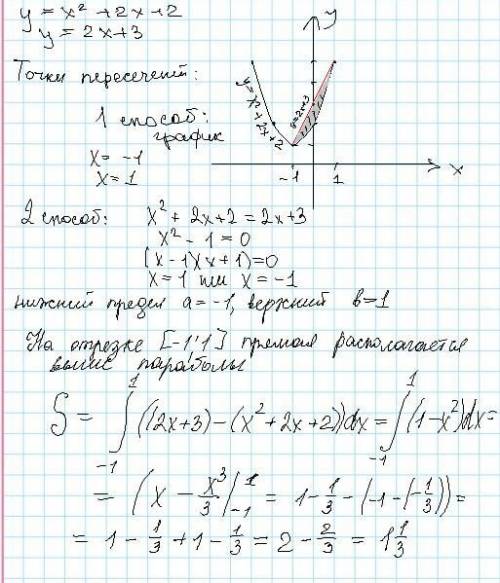 y = x² + 2x + 2
y = 2x + 3
Точки пересечений:
1 способ:
график
x = -1
x = 1
y
y = x² + 2x + 2
y = 2x+3
-1 1 x
2 способ: x² + 2x + 2 = 2x + 3
x² - 1 = 0
(x - 1)(x + 1) = 0
x = 1 или x = -1
нижний предел a = -1, верхний b = 1
На отрезке [-1; 1] прямая располагается
выше параболы
S = ∫₋₁¹ ((2x + 3) - (x² + 2x + 2))dx = ∫₋₁¹ (1 - x²)dx =
= (x - x³/3 |₋₁¹ = 1 - 1/3 - (-1 - (-1/3)) =
= 1 - 1/3 + 1 - 1/3 = 2 - 2/3 = 1 1/3